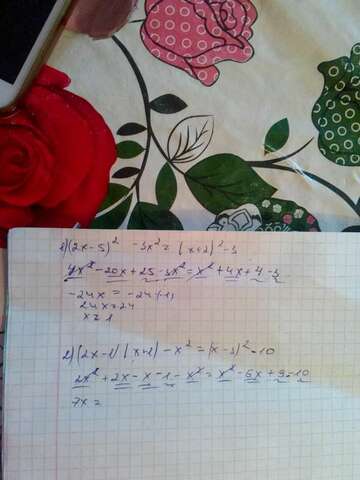 1)(2x-5)² -3x² = (x+2)² -3
4x² -20x+25-3x² = x² +4x+4-3
-24x = -24 |(-1)
24x=24
x=1
2)(2x-1)(x+1) -x² = (x-3)² -10
2x² +2x -x -1 -x² = x² -6x +9-10
7x =